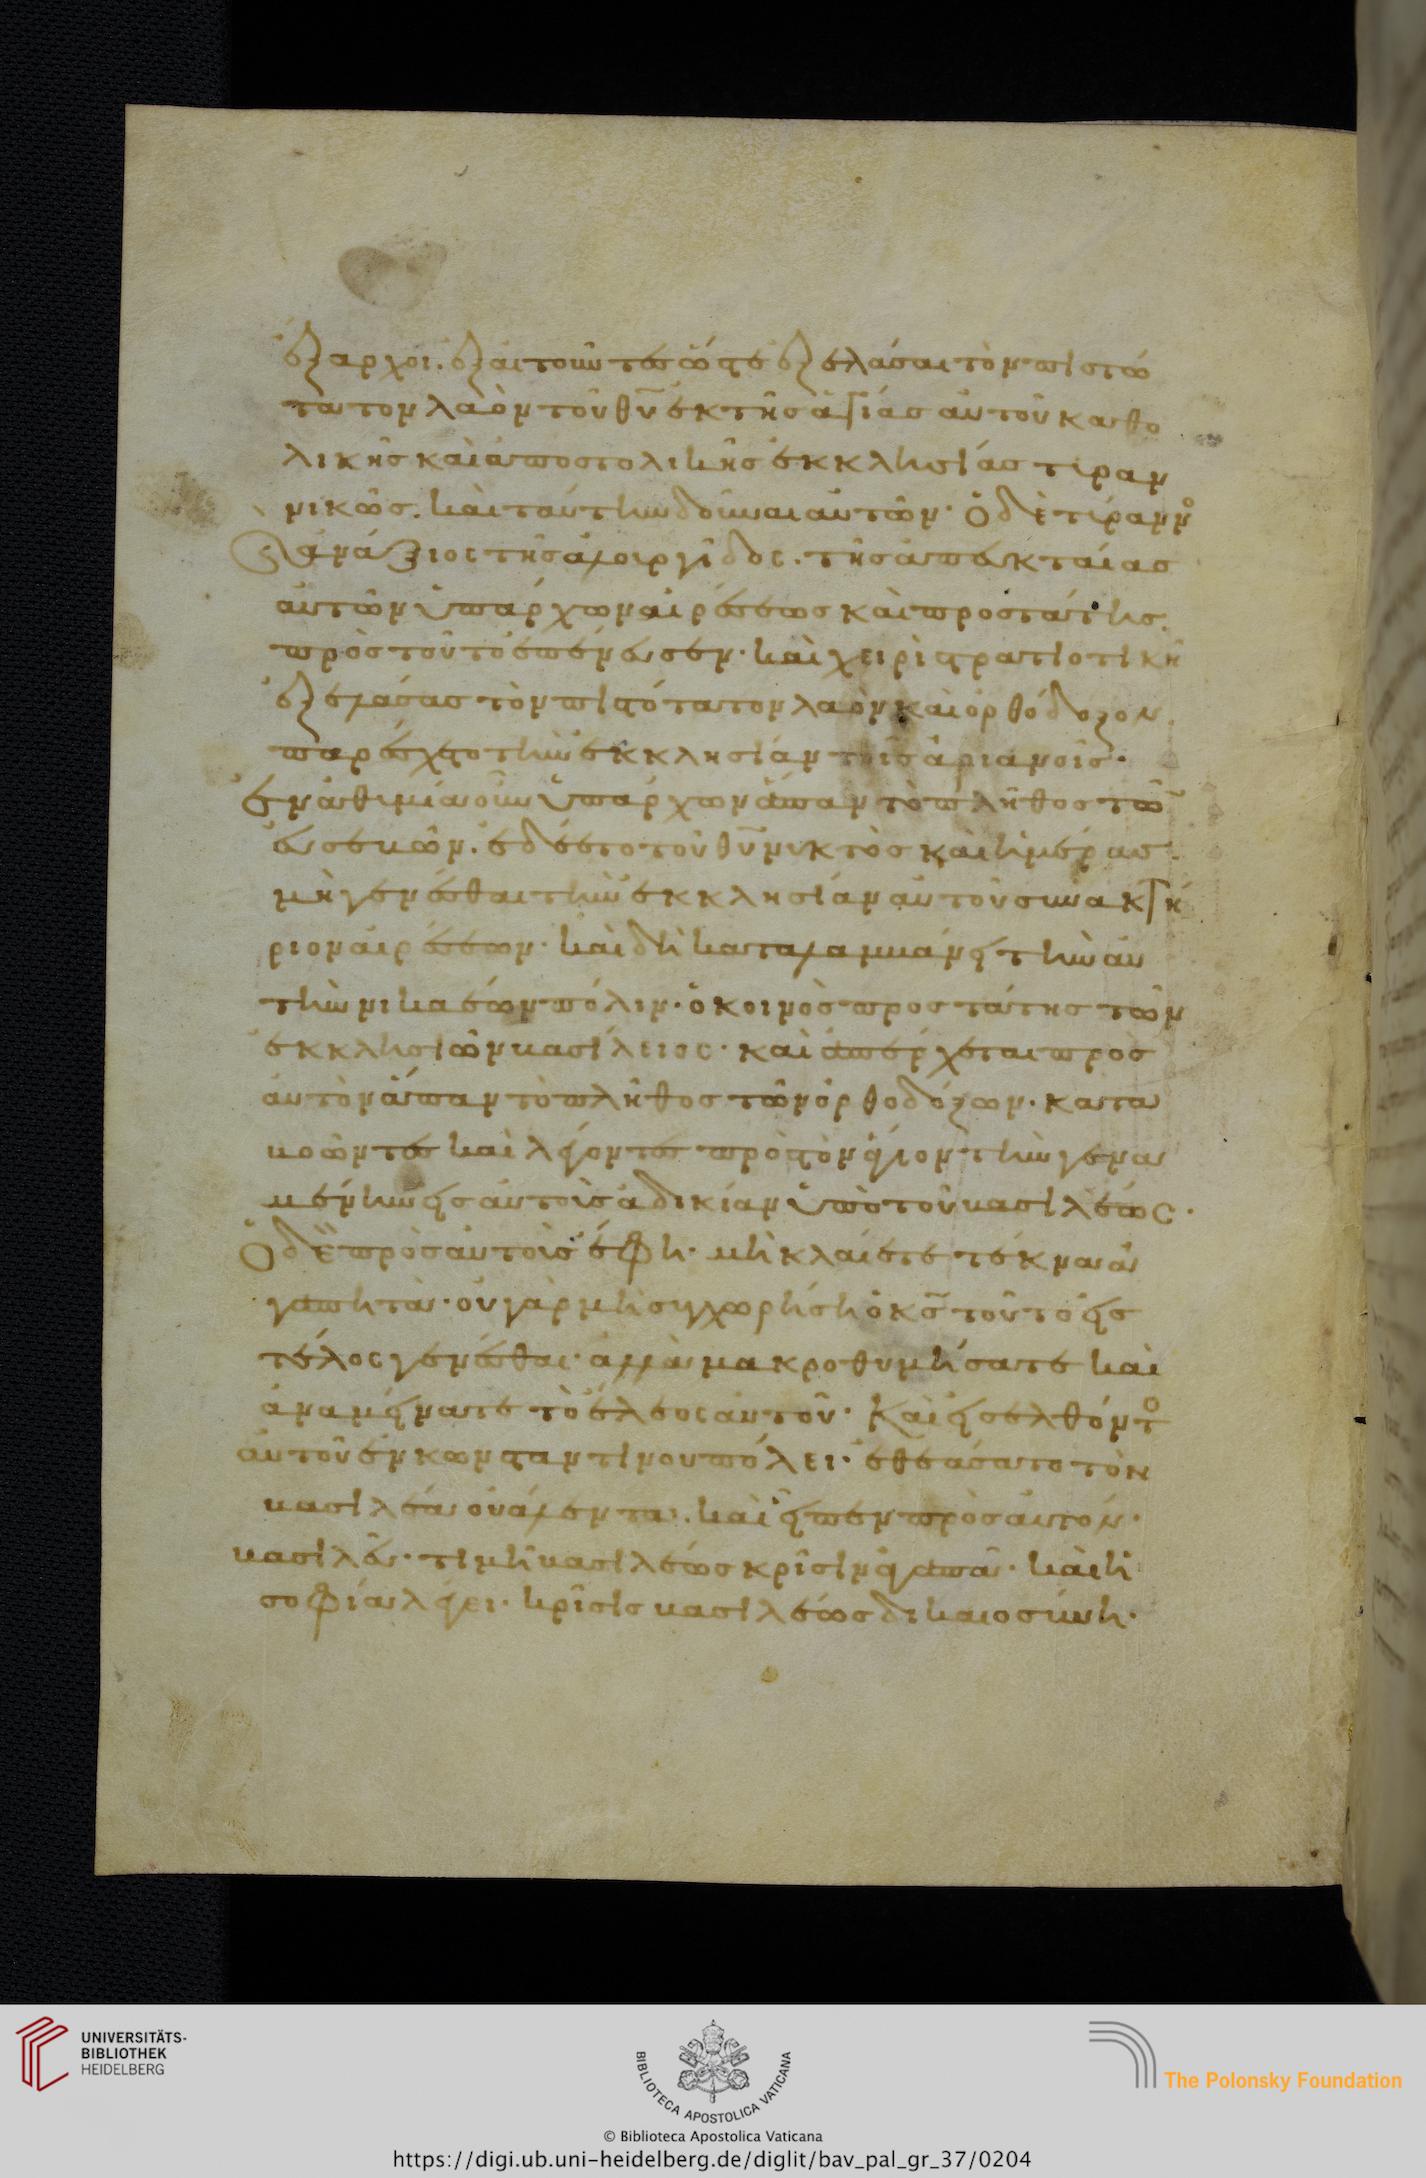 ἔξαρχοι. ἐξαιτοῦντες ὥστε ἐξελάσαι τὸν πιστώ
τατον λαὸν τοῦ θῦ ἐκ τῆς ἁγίας αὐτοῦ καθο
λικῆς καὶ ἀποστολικῆς ἐκκλησίας τυραν
νικῶς. καὶ ταύτην δοῦναι αὐτῶν· ὁ δὲ τύρανν
ἀνάξιος τῆς ἁλουργίδος. τῆς ἀπευκταίας
αὐτῶν ὑπάρχων αἱρέσεως καὶ προστάτης.
πρὸς τοῦτο ἐπένευσεν· καὶ χειρὶ στρατιοτικῆ
ἐξελάσας τὸν πιστότατον λαὸν καὶ ὀρθόδοξον.
παρέσχετο τὴν ἐκκλησίαν τοῖς ἀριανοῖς·
Ἐν ἀθυμία οὖν ὑπάρχων ἅπαν τὸ πλῆθος τῶ
εὐσεβῶν. ἐδέετο τοῦ θῦ νυκτὸς καὶ ἡμέρας.
μὴ γενέσθαι τὴν ἐκκλησίαν αὐτοῦ συνακτή
ριον αἱρέσεων· καὶ δὴ καταλαμβάνει τὴν αὐ
τὴν νικαέων πόλιν· ὁ κοινὸς προστάτης τῶν
ἐκκλησιῶν βασίλειος· καὶ ἀπέρχεται πρὸς
αὐτὸν ἅπαν τὸ πλῆθος τῶν ὀρθοδόξων. κατα
βοῶντες καὶ λέγοντες πρὸς τὸν ἅγιον τὴν γενα
μένην εἰς αὐτοὺς ἀδικίαν ὑπὸ τοῦ βασιλέως·
Ὁ δὲ πρὸς αὐτοὺς ἔφη· μὴ κλαίετε τέκνα ἀ
γαπητὰ· οὐ γὰρ μὴ συγχωρήση ὁ κς τοῦτο εἰς
τέλος γενέσθαι· ἀλλὰ μακροθυμήσατε καὶ
ἀναμείνατε τὸ ἔλεος αὐτοῦ· Καὶ εἰσελθόντ
αὐτοῦ ἐν κωνσταντίνου πόλει· ἐθεάσατο τὸν
βασιλέα οὐάλεντα. καὶ εἶπεν πρὸς αὐτόν·
βασιλεῦ· τιμὴ βασιλέως κρίσιν ἀγαπᾶ· καὶ ἡ
σοφία λέγει· κρίσις βασιλέως δικαιοσύνη·
UNIVERSITÄTS-
BIBLIOTHEK
HEIDELBERG
BIBLIOTECA APOSTOLICA VATICANA
The Polonsky Foundation
© Biblioteca Apostolica Vaticana
https://digi.ub.uni-heidelberg.de/diglit/bav_pal_gr_37/0204